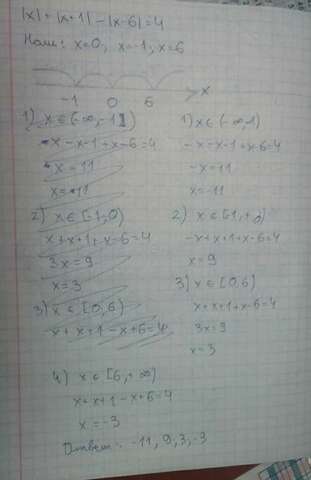 |x| + |x+1| - |x-6| = 4
Нам: x=0, x=-1, x=6
-1 0 6 x
1) x ∈ (-∞, -1)
-x-x-1+x-6=4
-x=11
x=-11
2) x ∈ [-1, 0)
x+x+1+x-6=4
3x=9
x=3
3) x ∈ [0, 6)
x+x+1-x+6=4
1) x ∈ (-∞, -1)
-x-x-1+x-6=4
-x=11
x=-11
2) x ∈ [-1, 0)
-x+x+1+x-6=4
x=9
3) x ∈ [0, 6)
x+x+1+x-6=4
3x=9
x=3
4) x ∈ [6, +∞)
x+x+1-x+6=4
x=-3
Ответ: -11, 9, 3, -3